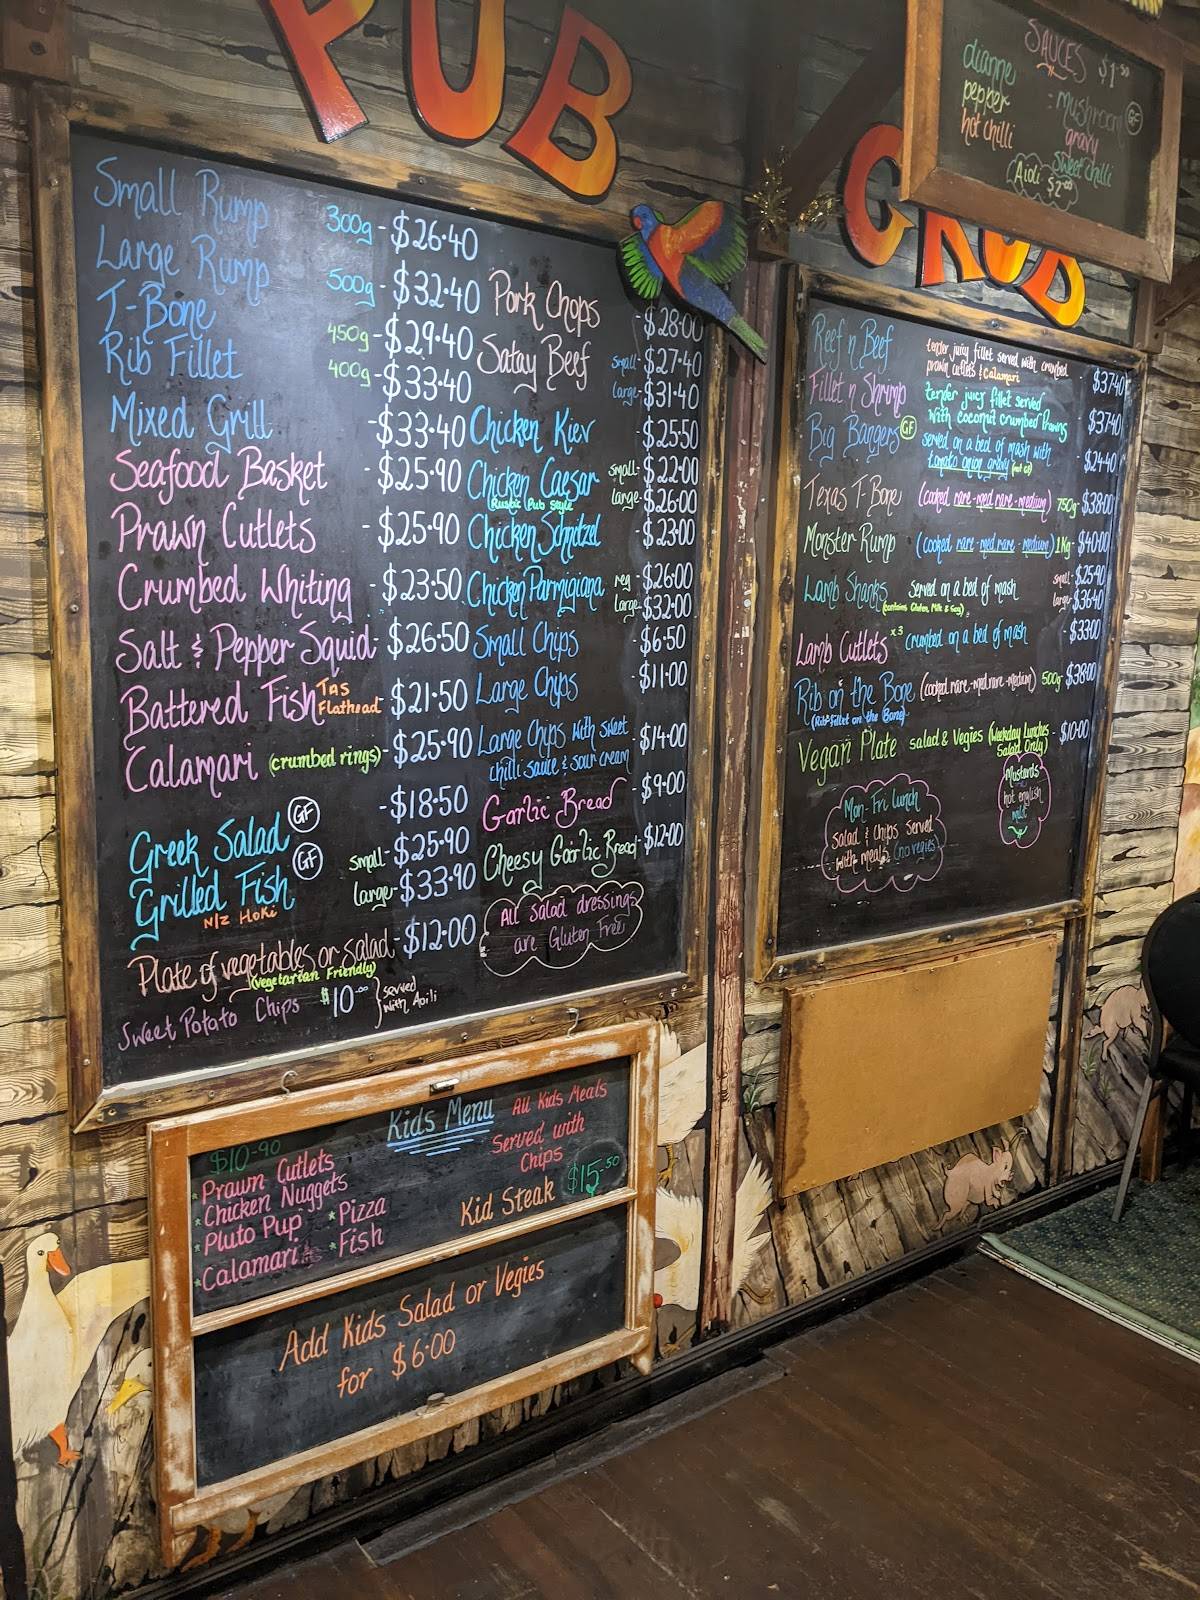 PUB GRUB
SAUCES $1.50
dianne
pepper
hot chilli
mushroom GF
gravy
sweet chilli
Aioli $2.00
Small Rump 300g - $26.40
Large Rump 500g - $32.40
T-Bone 450g - $29.40
Rib Fillet 400g - $33.40
Mixed Grill - $33.40
Seafood Basket - $25.90
Prawn Cutlets - $25.90
Crumbed Whiting - $23.50
Salt & Pepper Squid - $26.50
Battered Fish Tas Flathead - $21.50
Calamari (crumbed rings) - $25.90
Greek Salad GF - $18.50
Grilled Fish GF small - $25.90
N/Z Hoki large - $33.90
Plate of vegetables or salad - $12.00
(vegetarian Friendly)
Sweet Potato Chips $10.00 } served with Aoili
Pork Chops - $28.00
Satay Beef small - $27.40
large - $31.40
Chicken Kiev - $25.50
Chicken Caesar small - $22.00
Rustic Pub Style large - $26.00
Chicken Schnitzel - $23.00
Chicken Parmigiana reg - $26.00
large - $32.00
Small Chips - $6.50
Large Chips - $11.00
Large Chips with sweet - $14.00
chilli sauce & sour cream
Garlic Bread - $9.00
Cheesy Garlic Bread - $12.00
All salad dressings
are Gluten Free
Reef n Beef tender juicy fillet served with crumbed
prawn cutlets & Calamari $37.40
Fillet n Shrimp tender juicy fillet served
with coconut crumbed Prawns $37.40
Big Bangers GF served on a bed of mash with
tomato onion gravy - $24.40
Texas T-Bone (cooked rare - med rare - medium) 750g - $38.00
Monster Rump (cooked rare - med rare - medium) 1kg - $40.00
Lamb Shanks served on a bed of mash small - $25.90
(contains Gluten, Milk & Soy) large - $36.40
Lamb Cutlets x3 crumbed on a bed of mash - $33.00
Rib on the Bone (cooked rare - med rare - medium) 500g - $38.00
(Rib Fillet on the Bone)
Vegan Plate salad & Vegies (Weekday Lunches - $10.00
Salad Only)
Mon-Fri lunch
salad & chips served
with meals (no vegies)
Mustards
hot english
mild
Kids Menu
All Kids Meals
Served with
Chips
$10.90
Prawn Cutlets
Chicken Nuggets
Pluto Pup * Pizza
Calamari * Fish
Kid Steak $15.50
Add Kids Salad or Vegies
for $6.00